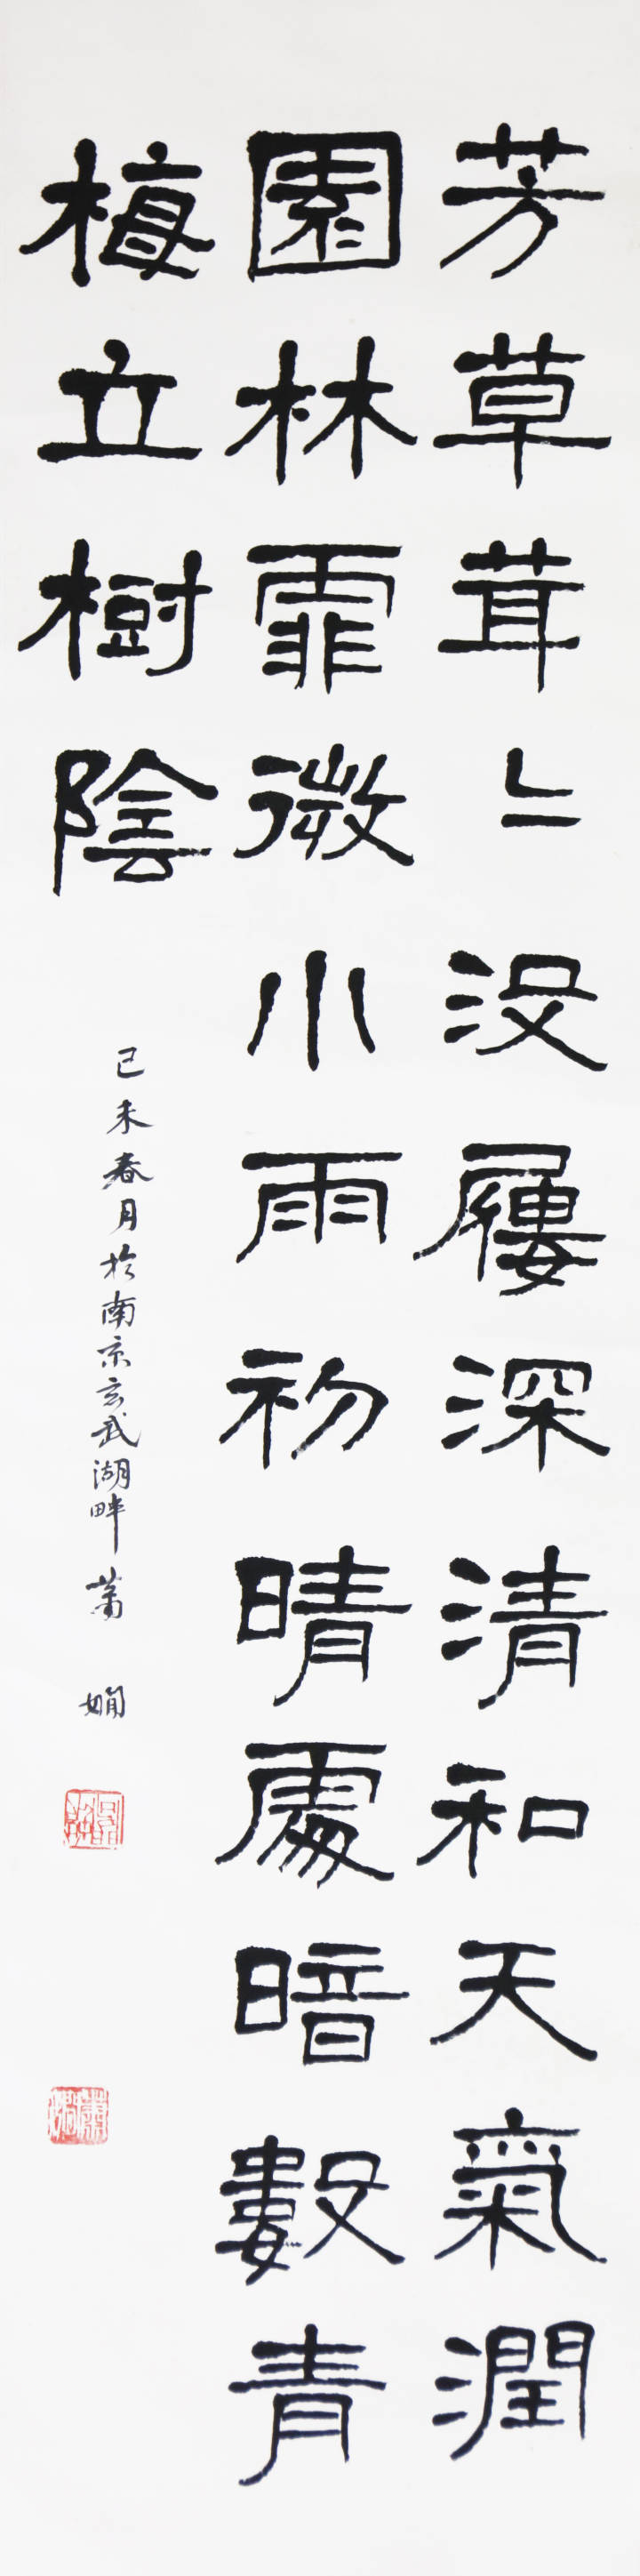 芳草茸〻没屨深清和天氣潤
園林霏微小雨初晴處暗數青
梅立樹陰
己未春月於南京玄武湖畔蕭嫻